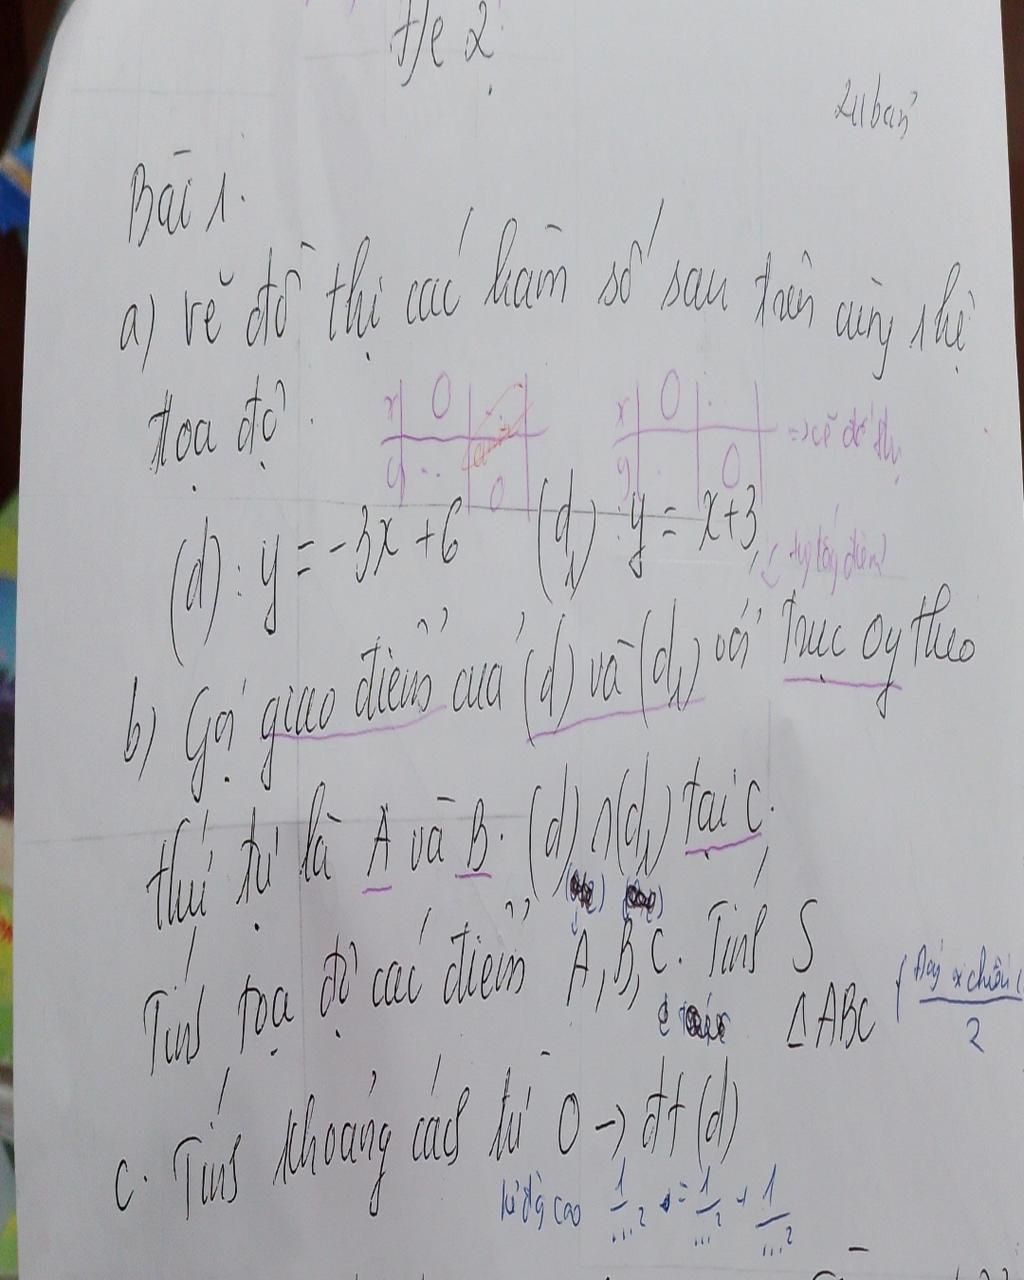 Đề 2
Bài 1.
a) vẽ đồ thị các hàm số sau trên cùng 1 hệ
tọa độ.
x 0
y ... 0
x 0 ..
y . 0
=> vẽ đồ thị
(d): y = -3x + 6 (d₁): y = x+3
b) Gọi giao điểm của (d) và (d₁) với trục Oy theo
thứ tự là A và B. (d) ∩ (d₁) tại C.
Tính tọa độ các điểm A, B, C. Tính S
ΔABC
2
c. Tính khoảng cách từ O → đt (d)
kẻ đg cao 1/...² = 1/...² + 1/...²